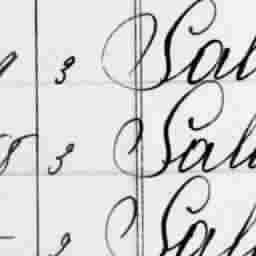 3 Sal
8 3 Sal
3 Sal